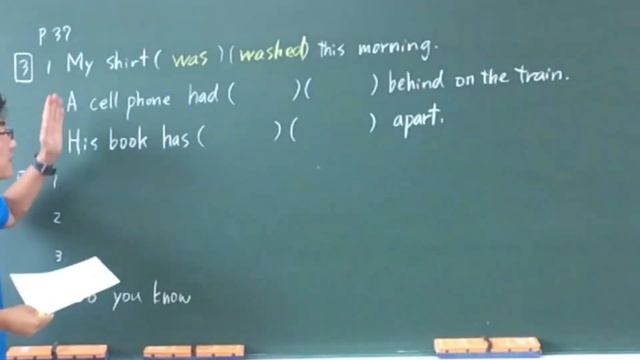 P 37
3 1 My shirt ( was ) ( washed ) this morning.
A cell phone had ( ) ( ) behind on the train.
His book has ( ) ( ) apart.
1
2
3
you know